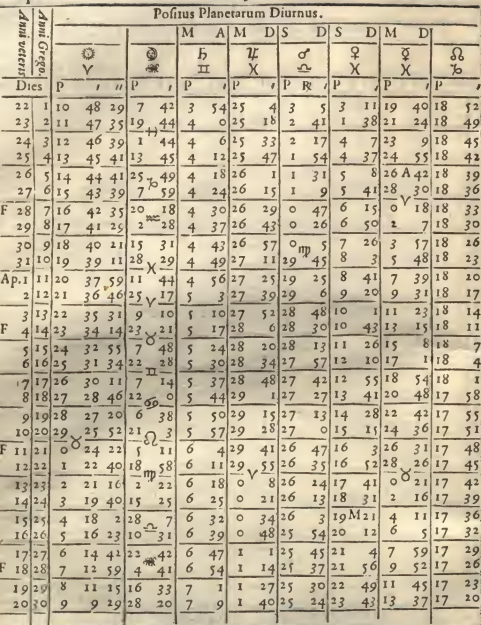 Positus Planetarum Diurnus.
Anni veteris Anni Grego. ☉ ☽ M A M D S D S D M D
♄ ♃ ♂ ♀ ☿ ☊
♈ ♏ ♊ ♓ ♎ ♓ ♓ ♑
Dies P ′ ″ P ′ P ′ P ′ P ℞ ′ P ′ P ′ P ′
22 1 10 48 29 7 42 3 54 25 4 3 5 3 11 19 40 18 52
23 2 11 47 35 19 44 4 0 25 18 2 41 3 38 21 24 18 49
♐
24 3 12 46 39 1 44 4 6 25 33 2 17 4 7 23 9 18 45
25 4 13 45 41 13 45 4 12 25 47 1 54 4 37 24 55 18 42
26 5 14 44 41 25 49 4 18 26 1 1 31 5 8 26 A 42 18 39
♑
27 6 15 43 39 7 59 4 24 26 15 1 9 5 41 28 30 18 36
♈
F 28 7 16 42 35 20 18 4 30 26 29 0 47 6 15 0 18 18 33
♒
29 8 17 41 29 2 28 4 37 26 43 0 26 6 50 2 7 18 30
30 9 18 40 21 15 31 4 43 26 57 0 ♍ 5 7 26 3 57 18 26
31 10 19 39 11 28 29 4 49 27 11 29 45 8 3 5 48 18 23
♓
Ap. 1 11 20 37 59 11 44 4 56 27 25 29 25 8 41 7 39 18 20
2 12 21 36 46 25 17 5 3 27 39 29 6 9 20 9 31 18 17
♈
3 13 22 35 31 9 10 5 10 27 52 28 48 10 1 11 23 18 14
F 4 14 23 34 14 23 21 5 17 28 6 28 30 10 43 13 15 18 11
♉
5 15 24 32 55 7 48 5 24 28 20 28 13 11 26 15 8 18 7
6 16 25 31 34 22 28 5 30 28 34 27 57 12 10 17 1 18 4
♊
7 17 26 30 11 7 14 5 37 28 48 27 42 12 55 18 54 18 1
8 18 27 28 46 22 0 5 44 29 1 27 27 13 41 20 48 17 58
♋
9 19 28 27 20 6 38 5 50 29 15 27 13 14 28 22 42 17 55
10 20 29 25 52 21 3 5 57 29 28 27 0 15 15 24 36 17 51
♉ ♌
F 11 21 0 24 22 5 11 6 4 29 41 26 47 16 3 26 31 17 48
12 22 1 22 40 18 58 6 11 29 55 26 35 16 52 28 26 17 45
♍ ♈ ♉
13 23 2 21 16 2 22 6 18 0 8 26 24 17 41 0 21 17 42
14 24 3 19 40 15 25 6 25 0 21 26 13 18 31 2 16 17 39
15 25 4 18 2 28 7 6 32 0 34 26 3 19 M 21 4 11 17 36
♎
16 26 5 16 23 10 31 6 39 0 48 25 54 20 12 6 5 17 32
17 27 6 14 42 22 42 6 47 1 1 25 45 21 4 7 59 17 29
♏
F 18 28 7 12 59 4 41 6 54 1 14 25 37 21 56 9 52 17 26
19 29 8 11 15 16 33 7 1 1 27 25 30 22 49 11 45 17 23
20 30 9 9 29 28 20 7 9 1 40 25 24 23 43 13 37 17 20